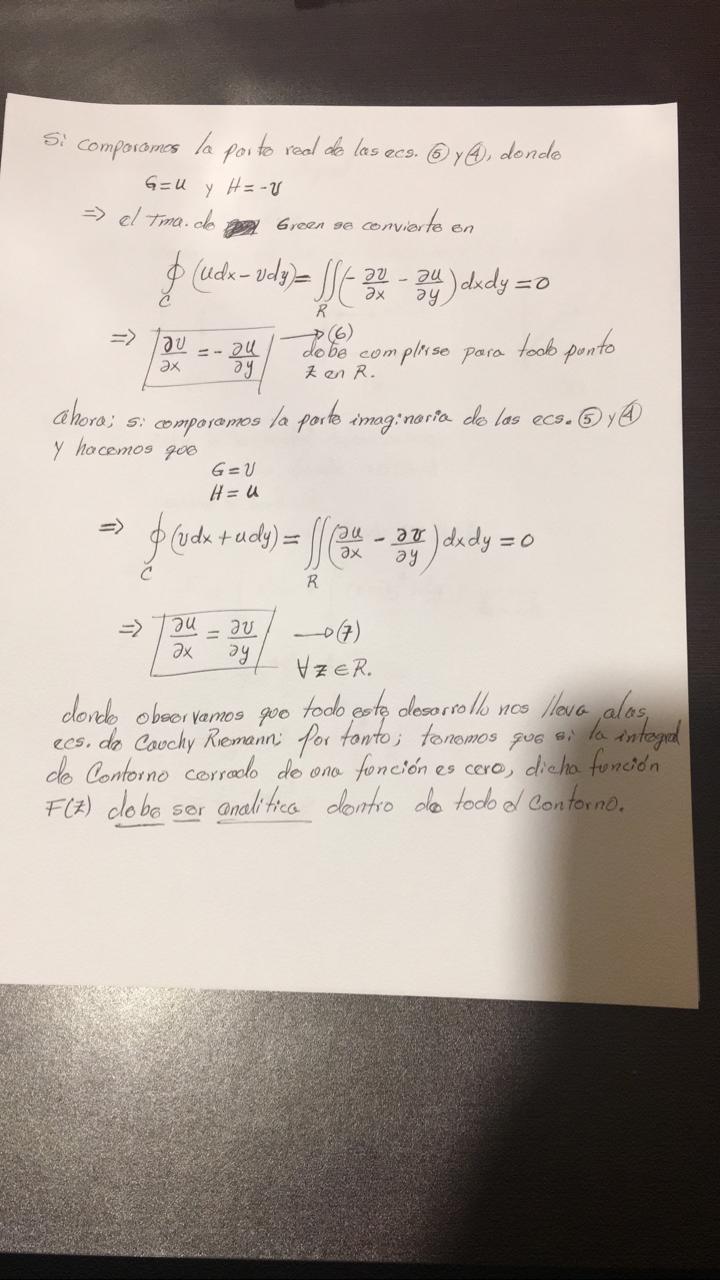 Si comparamos la parte real de las ecs. ⑤ y ④, donde
G=u y H=-v
=> el Tma. de Green se convierte en
∮_C (udx - vdy) = ∬_R (-∂v/∂x - ∂u/∂y) dxdy = 0
=> ∂v/∂x = -∂u/∂y → (6)
debe cumplirse para todo punto
z en R.
ahora; si comparamos la parte imaginaria de las ecs. ⑤ y ④
y hacemos que
G=v
H=u
=> ∮_C (vdx + udy) = ∬_R (∂u/∂x - ∂v/∂y) dxdy = 0
=> ∂u/∂x = ∂v/∂y → (7)
∀ z ∈ R.
donde observamos que todo este desarrollo nos lleva a las
ecs. de Cauchy Riemann; Por tanto; tenemos que si la integral
de Contorno cerrado de una función es cero, dicha función
F(z) debe ser analitica dentro de todo el Contorno.